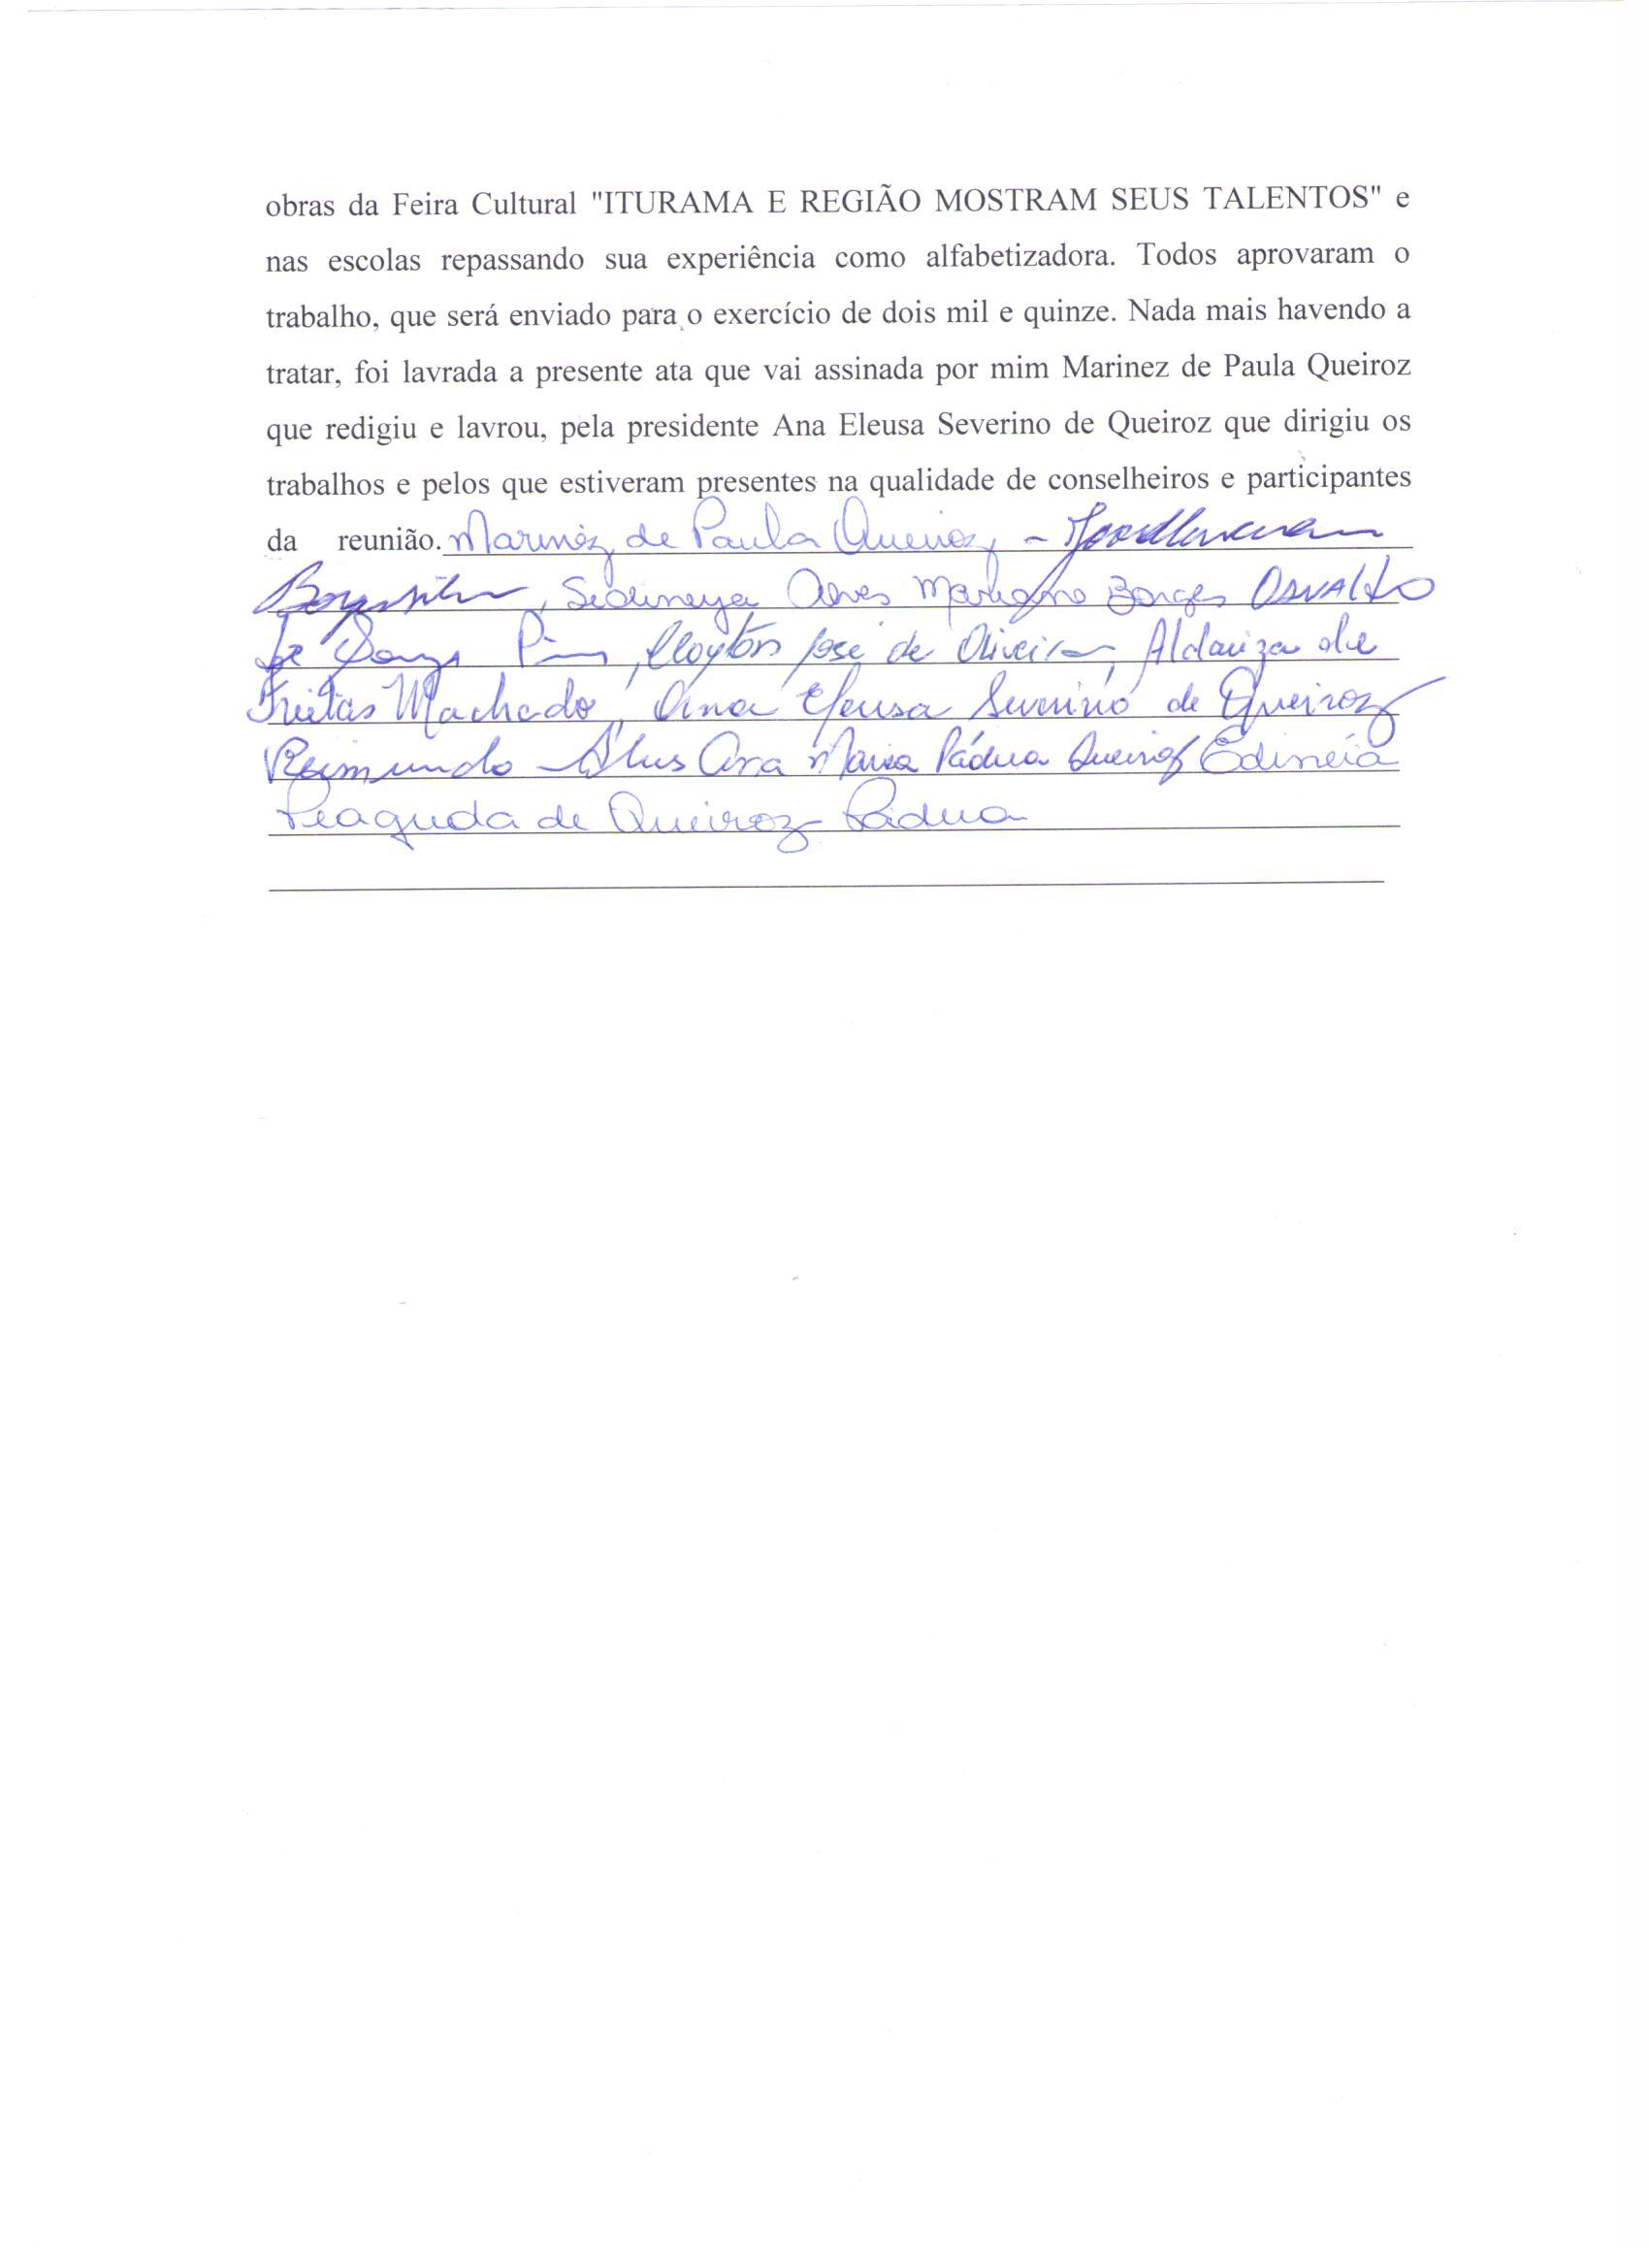 obras da Feira Cultural "ITURAMA E REGIÃO MOSTRAM SEUS TALENTOS" e
nas escolas repassando sua experiência como alfabetizadora. Todos aprovaram o
trabalho, que será enviado para o exercício de dois mil e quinze. Nada mais havendo a
tratar, foi lavrada a presente ata que vai assinada por mim Marinez de Paula Queiroz
que redigiu e lavrou, pela presidente Ana Eleusa Severino de Queiroz que dirigiu os
trabalhos e pelos que estiveram presentes na qualidade de conselheiros e participantes
da reunião. Marinêz de Paula Queiroz, -
Alves Borges Osvaldo
de José de Oliveira, Aldaiza de
Freitas Machado, Ana Eleusa Severino de Queiroz
Raimundo Alves Ana Maria Pádua Queiroz Edineia
de Queiroz Pádua